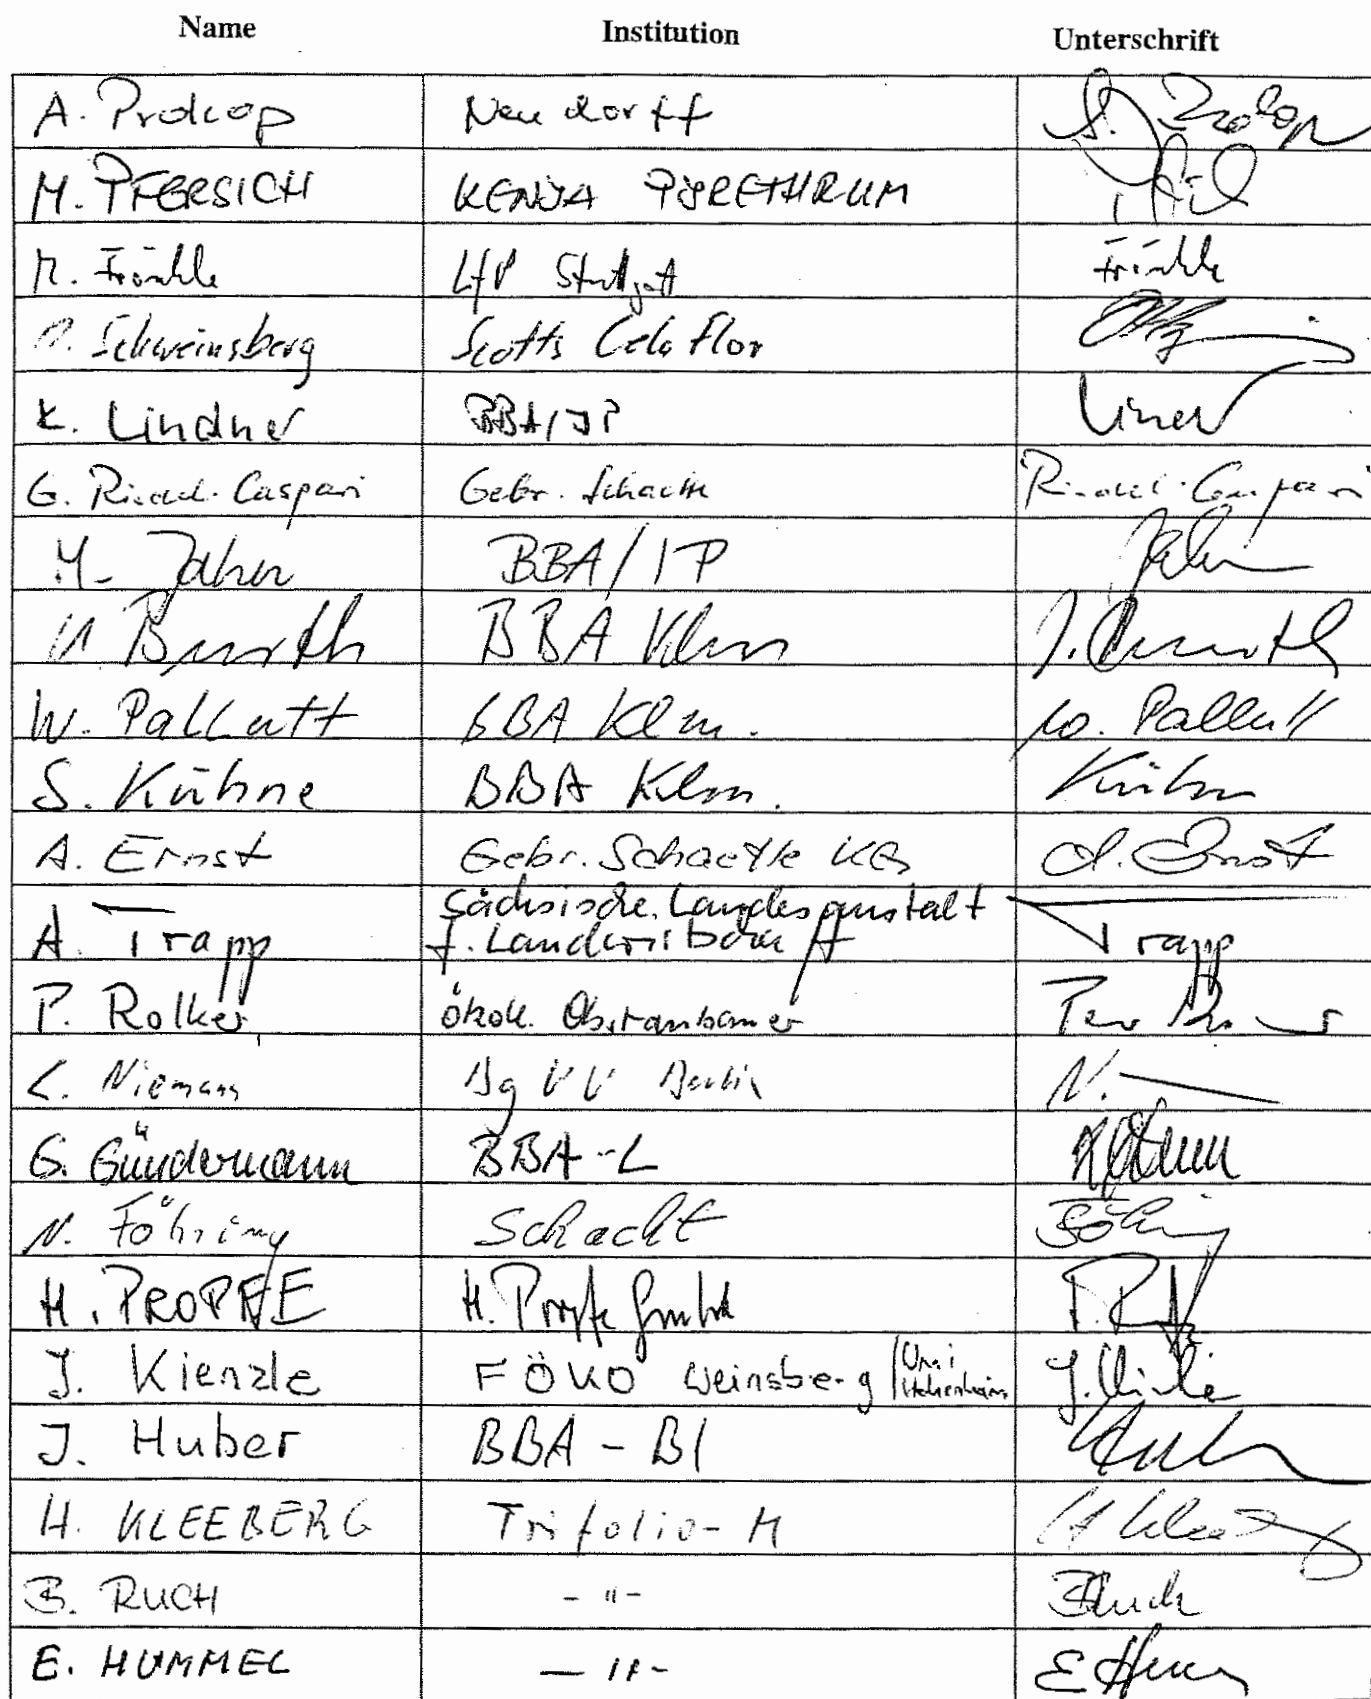 Name Institution Unterschrift
A. Prokop Neudorff A. Prokop
M. PFERSICH KENYA PYRETHRUM
M. Fränkle LfP Stuttgart Fränkle
Schweinsberg Scotts Celaflor
K. Lindner BBA/IP
G. Riedel-Caspari Gebr. Schaette Riedel-Caspari
M. Jahn BBA/IP Jahn
U. Burth BBA Klm Burth
W. Pallutt BBA Klm. W. Pallutt
S. Kühne BBA Klm. Kühne
A. Ernst Gebr. Schaette KG A. Ernst
A. Trapp Sächsische Landesanstalt Trapp
f. Landwirtschaft
P. Rolker ökol. Obstanbauer
L. Niemann BgVV Berlin N.
G. Gündermann BBA-L
N. Föhring Schacht Föhring
H. PROPFE H. Propfe GmbH
J. Kienzle FÖKO Weinsberg / Uni Hohenheim J. Kienzle
J. Huber BBA - BI
H. KLEEBERG Trifolio-M H Kleeberg
B. RUCH - " - BRuch
E. HUMMEL - " - E Hum